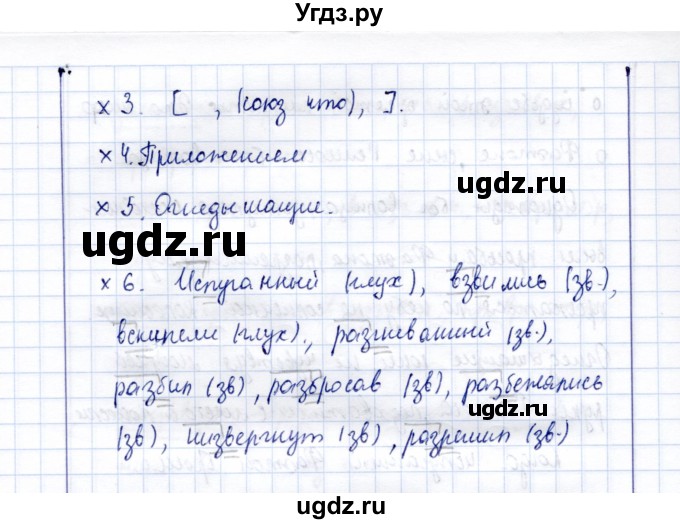 Угдз.ру
x 3. [ , (союз что), ].
x 4. Приложением
ugdz.ru
x 5. Огнедышащие.
ugdz.ru
x 6. Испуганный (глух), взвились (зв.),
вскипели (глух)., разгневанный (зв.),
разбил (зв), разбросав (зв), разбежались
ugdz.ru
(зв), низвергнут (зв), разрешил (зв.)
ugdz.ru